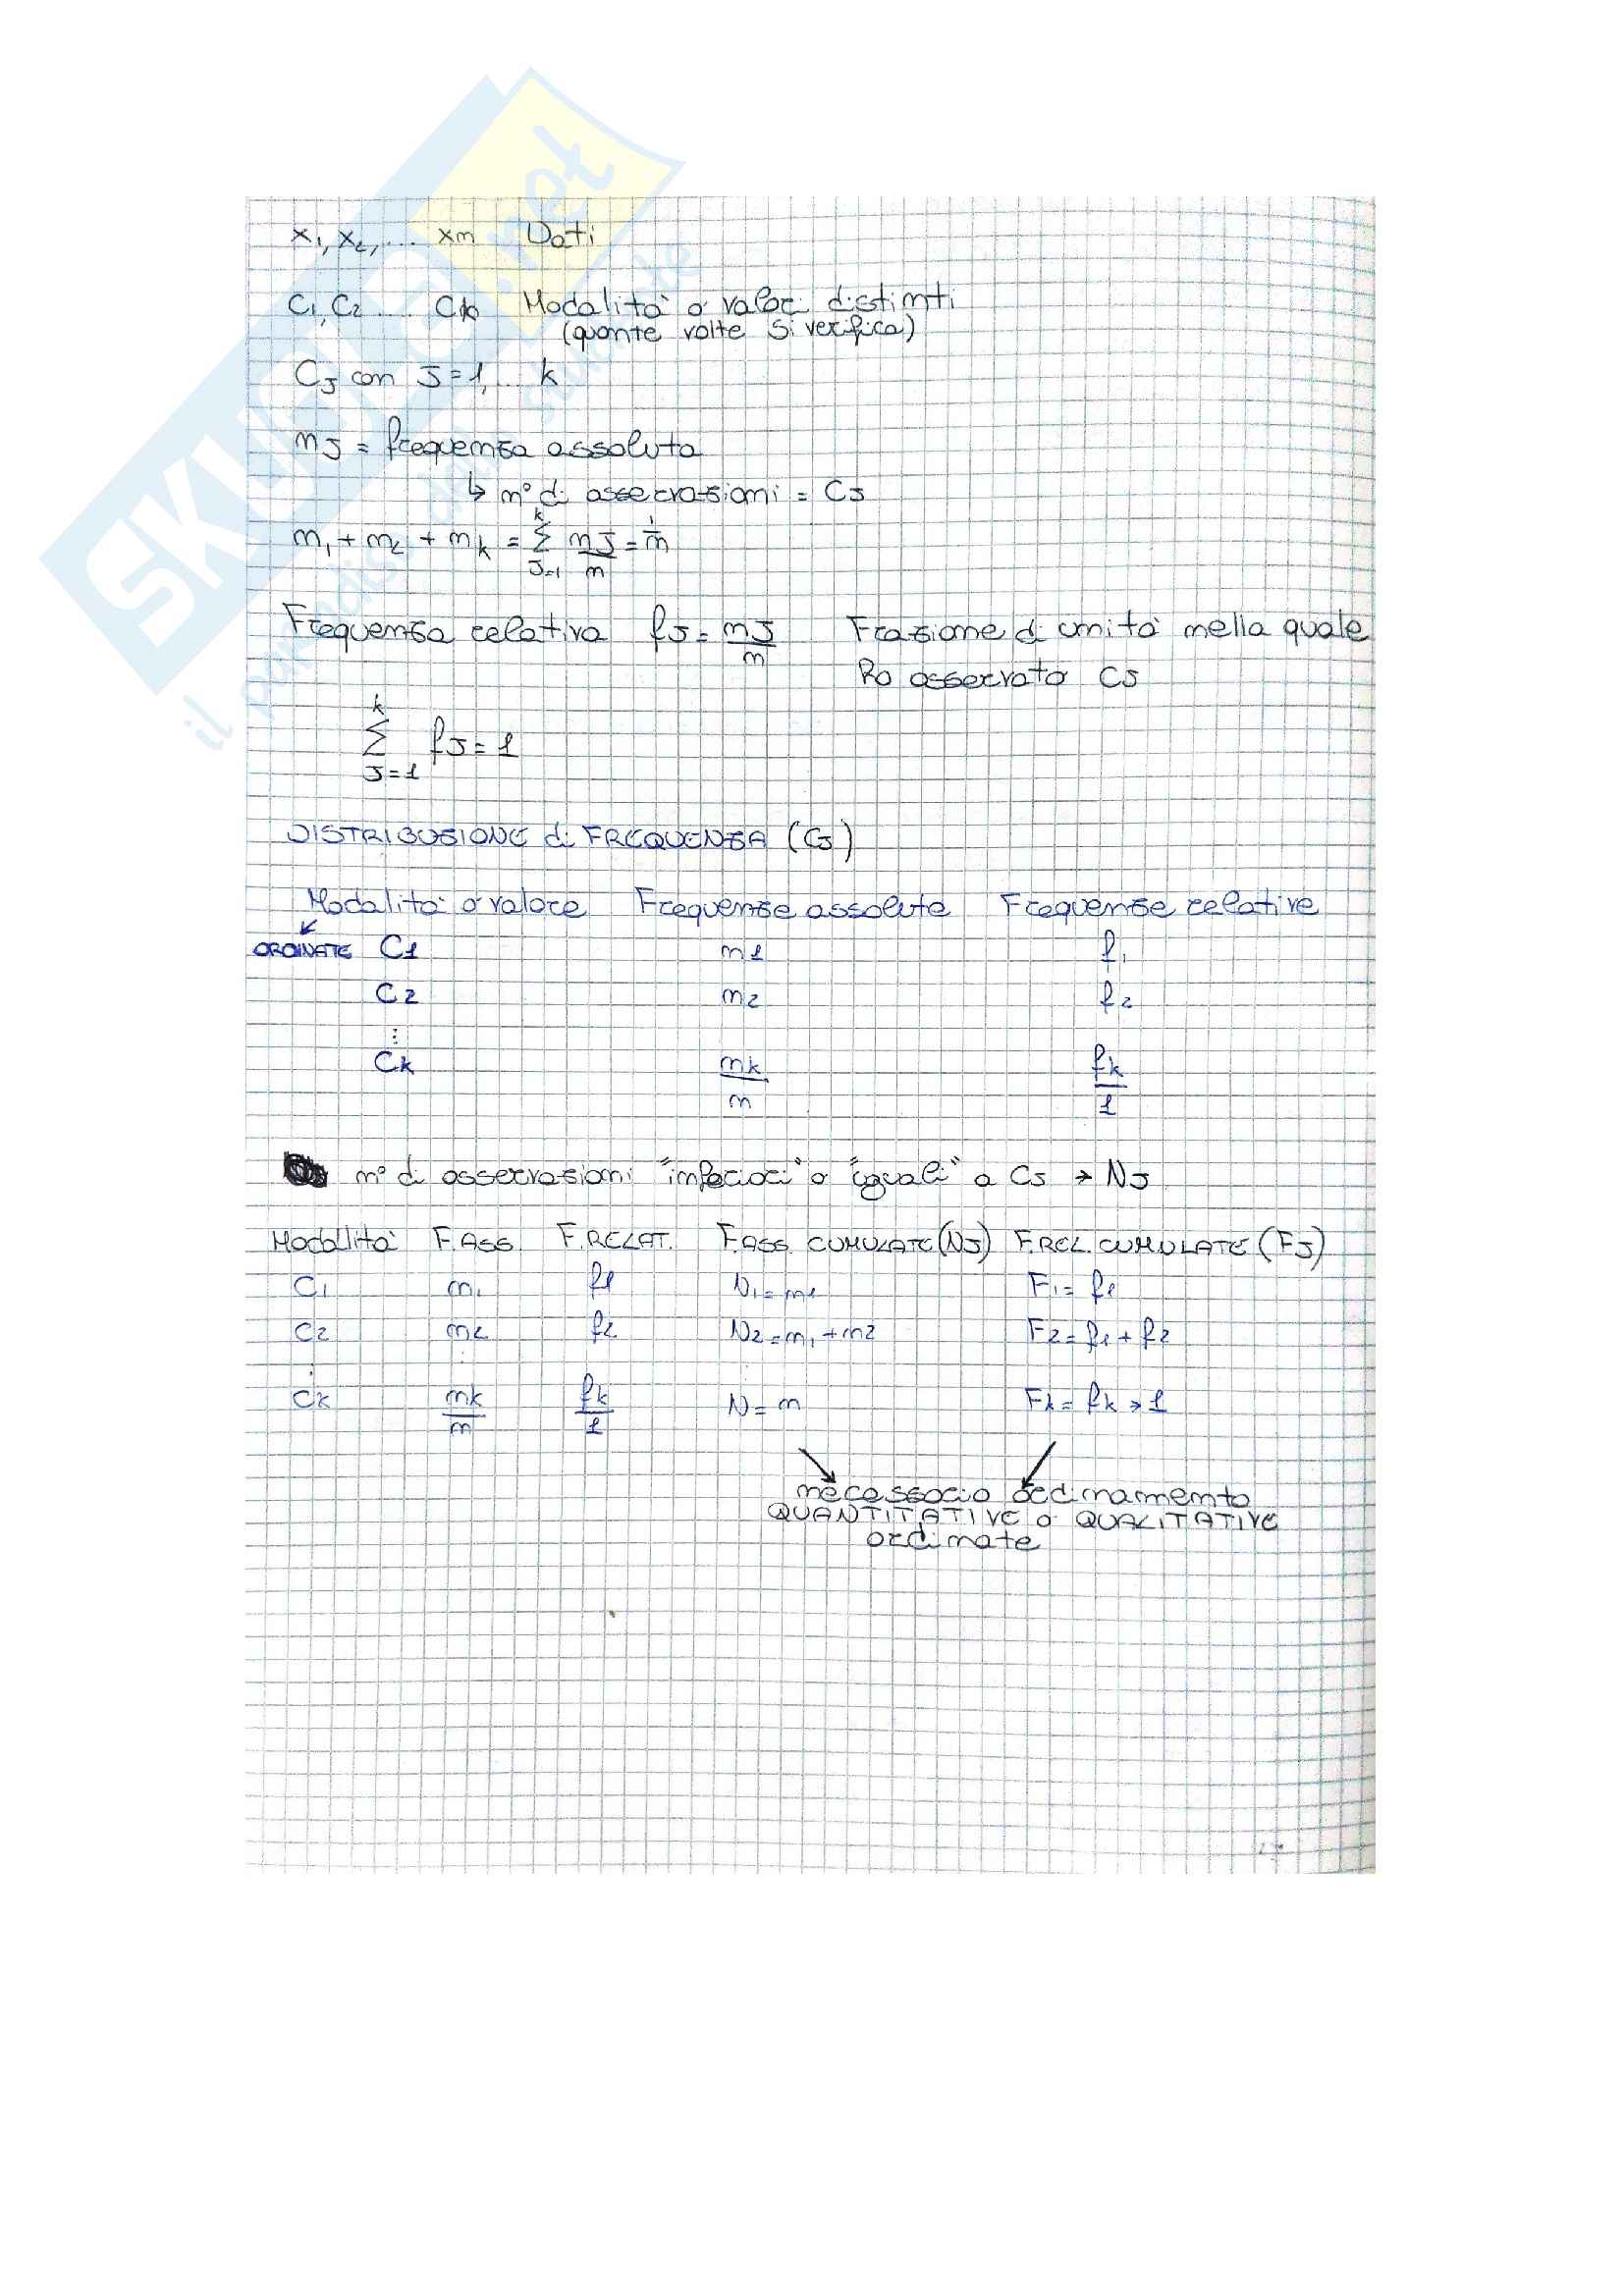 x1, x2, ... xn Dati
C1, C2 .... Ck Modalità o valori distinti
(quante volte si verifica)
CJ con J=1, ... k
nJ = frequenza assoluta
↳ n° di osservazioni = CJ
n1 + n2 + nk = k Σ J=1 nJ/n = 1/n
Frequenza relativa fJ = nJ/n Frazione di unità nella quale
ho osservato CJ
k Σ J=1 fJ = 1
DISTRIBUZIONE di FREQUENZA (CJ)
Modalità o valore Frequenze assolute Frequenze relative
ORDINATE C1 n1 f1
C2 n2 f2
⋮
Ck nk/n fk/1
n° di osservazioni "inferiori" o "iguali" a CJ → NJ
Modalità F.ASS. F.RELAT. F.ASS. CUMULATE (NJ) F.REL. CUMULATE (FJ)
C1 n1 f1 N1 = n1 F1 = f1
C2 n2 f2 N2 = n1 + n2 F2 = f1 + f2
⋮
Ck nk/n fk/1 N = n Fk = fk → 1
necessario ordinamento
QUANTITATIVE o QUALITATIVE
ordinate
SKUOLA.net
il paradiso dello studente